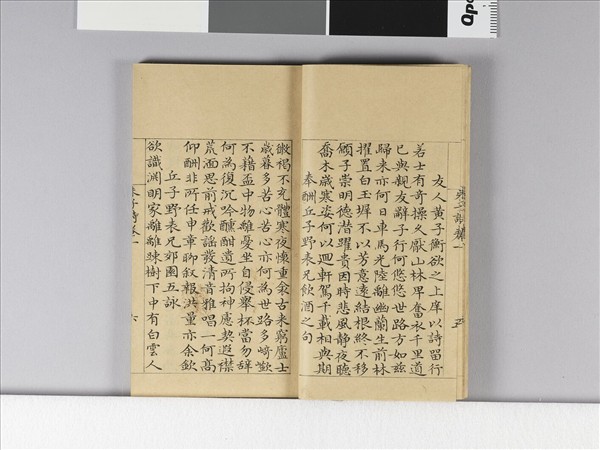 友人黃子衡欲之上庠以詩留行
若士有奇操久厭山林早奮衣千里道
已與親友辭子行何悠悠世路方如茲
歸來亦何日車馬光陸離幽蘭生前林
擢置白玉墀不以芳意遠結根終不移
願子崇明德潛躍貴因時悲風靜夜聽
喬木歲寒姿何以迴軒駕千載相與期
奉酬丘子野表兄飲酒之句
五
敝褐不充體寒夜懷重衾古來窮廬士
歲暮多苦心苦心亦何為世路多崎嶔
不藉盃中物離憂坐自侵舉杯當勿辭
何為復沉吟醺酣遺所拘神慮契遐襟
荒湎思前戒歡謠發清音雅唱一何高
仰酬非所任申章聊叙報洪量亦余欽
丘子野表兄郊園五詠
欲識淵明家離離疎樹下中有白雲人
六